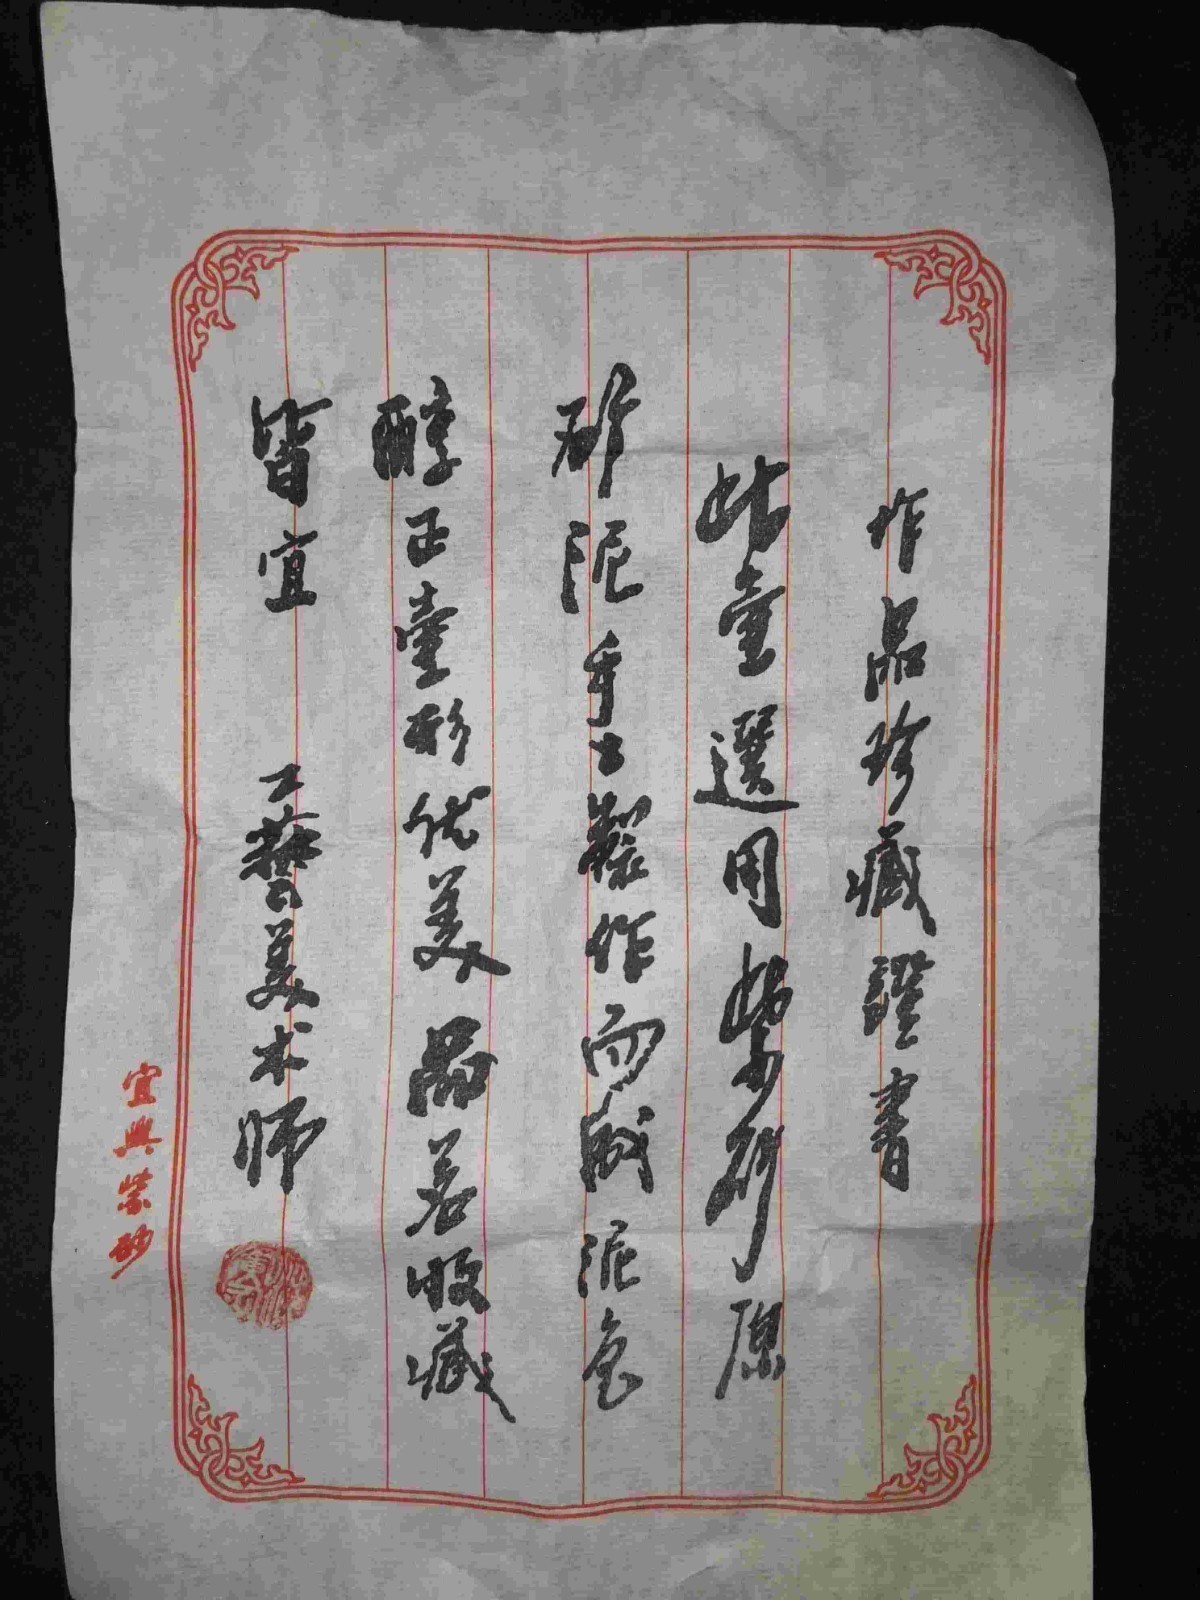 作品珍藏證書
此壷選用紫砂原
砂泥手工製作而成泥色
醇正壷形优美品茗收藏
皆宜 工藝美术师
宜興紫砂